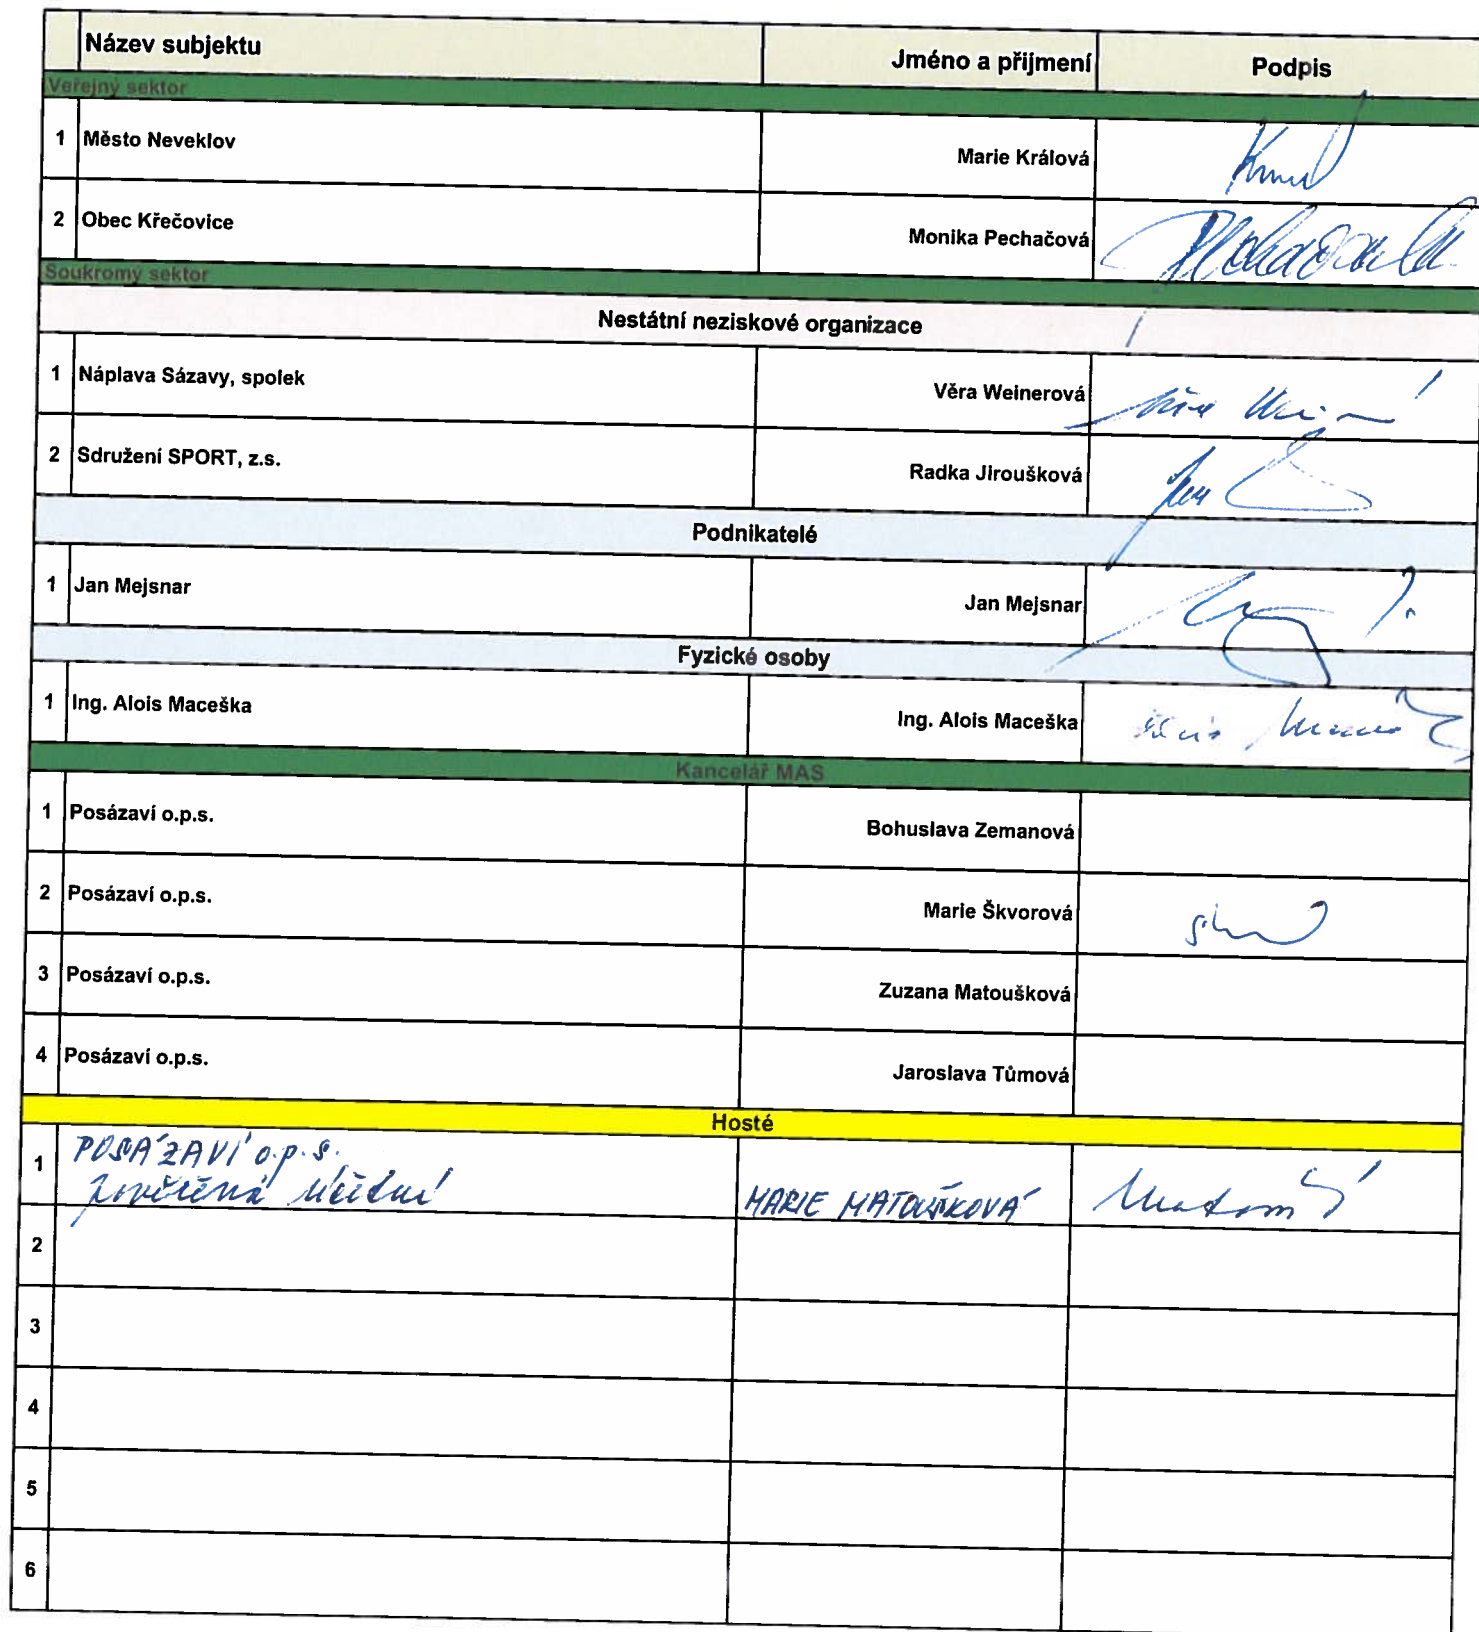 Název subjektu Jméno a přijmení Podpis
Veřejný sektor
1 Město Neveklov Marie Králová
2 Obec Křečovice Monika Pechačová
Soukromý sektor
Nestátní neziskové organizace
1 Náplava Sázavy, spolek Věra Weinerová
2 Sdružení SPORT, z.s. Radka Jiroušková
Podnikatelé
1 Jan Mejsnar Jan Mejsnar
Fyzické osoby
1 Ing. Alois Maceška Ing. Alois Maceška
Kancelář MAS
1 Posázaví o.p.s. Bohuslava Zemanová
2 Posázaví o.p.s. Marie Škvorová
3 Posázaví o.p.s. Zuzana Matoušková
4 Posázaví o.p.s. Jaroslava Tůmová
Hosté
1 POSÁZAVÍ o.p.s.
MARIE MATOUŠKOVÁ
2
3
4
5
6